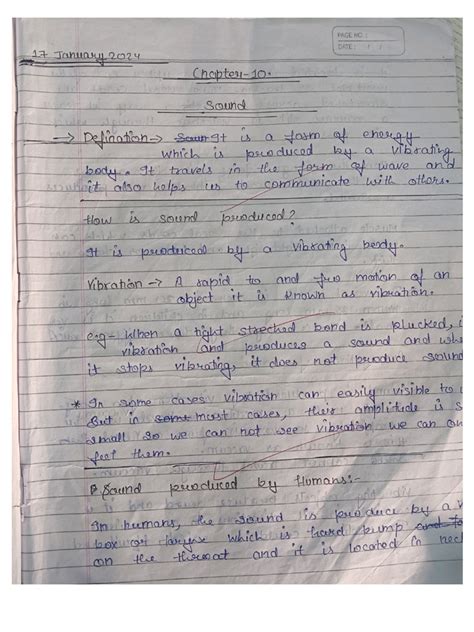 PAGE NO.:
DATE: / /
17 January 2024
Chapter-10.
Sound
→ Defination → It is a form of energy
which is produced by a vibrating
body. It travels in the form of wave and
it also helps us to communicate with others.
How is sound produced?
It is produriced by a vibrating body.
Vibration → A rapid to and fro motion of an
object it is known as vibration.
e.g- When a tight streched band is plucked,
vibration and produces a sound and
it stops vibrating, it does not produce sound
* In some cases vibration can easily visible to
But in some most cases, their amplitude is
small so we can not see vibration we can
feel them.
Sound produced by Humans:-
In humans, the sound is produce by a
box or larynx which is hard bump
on the throat and it is located in